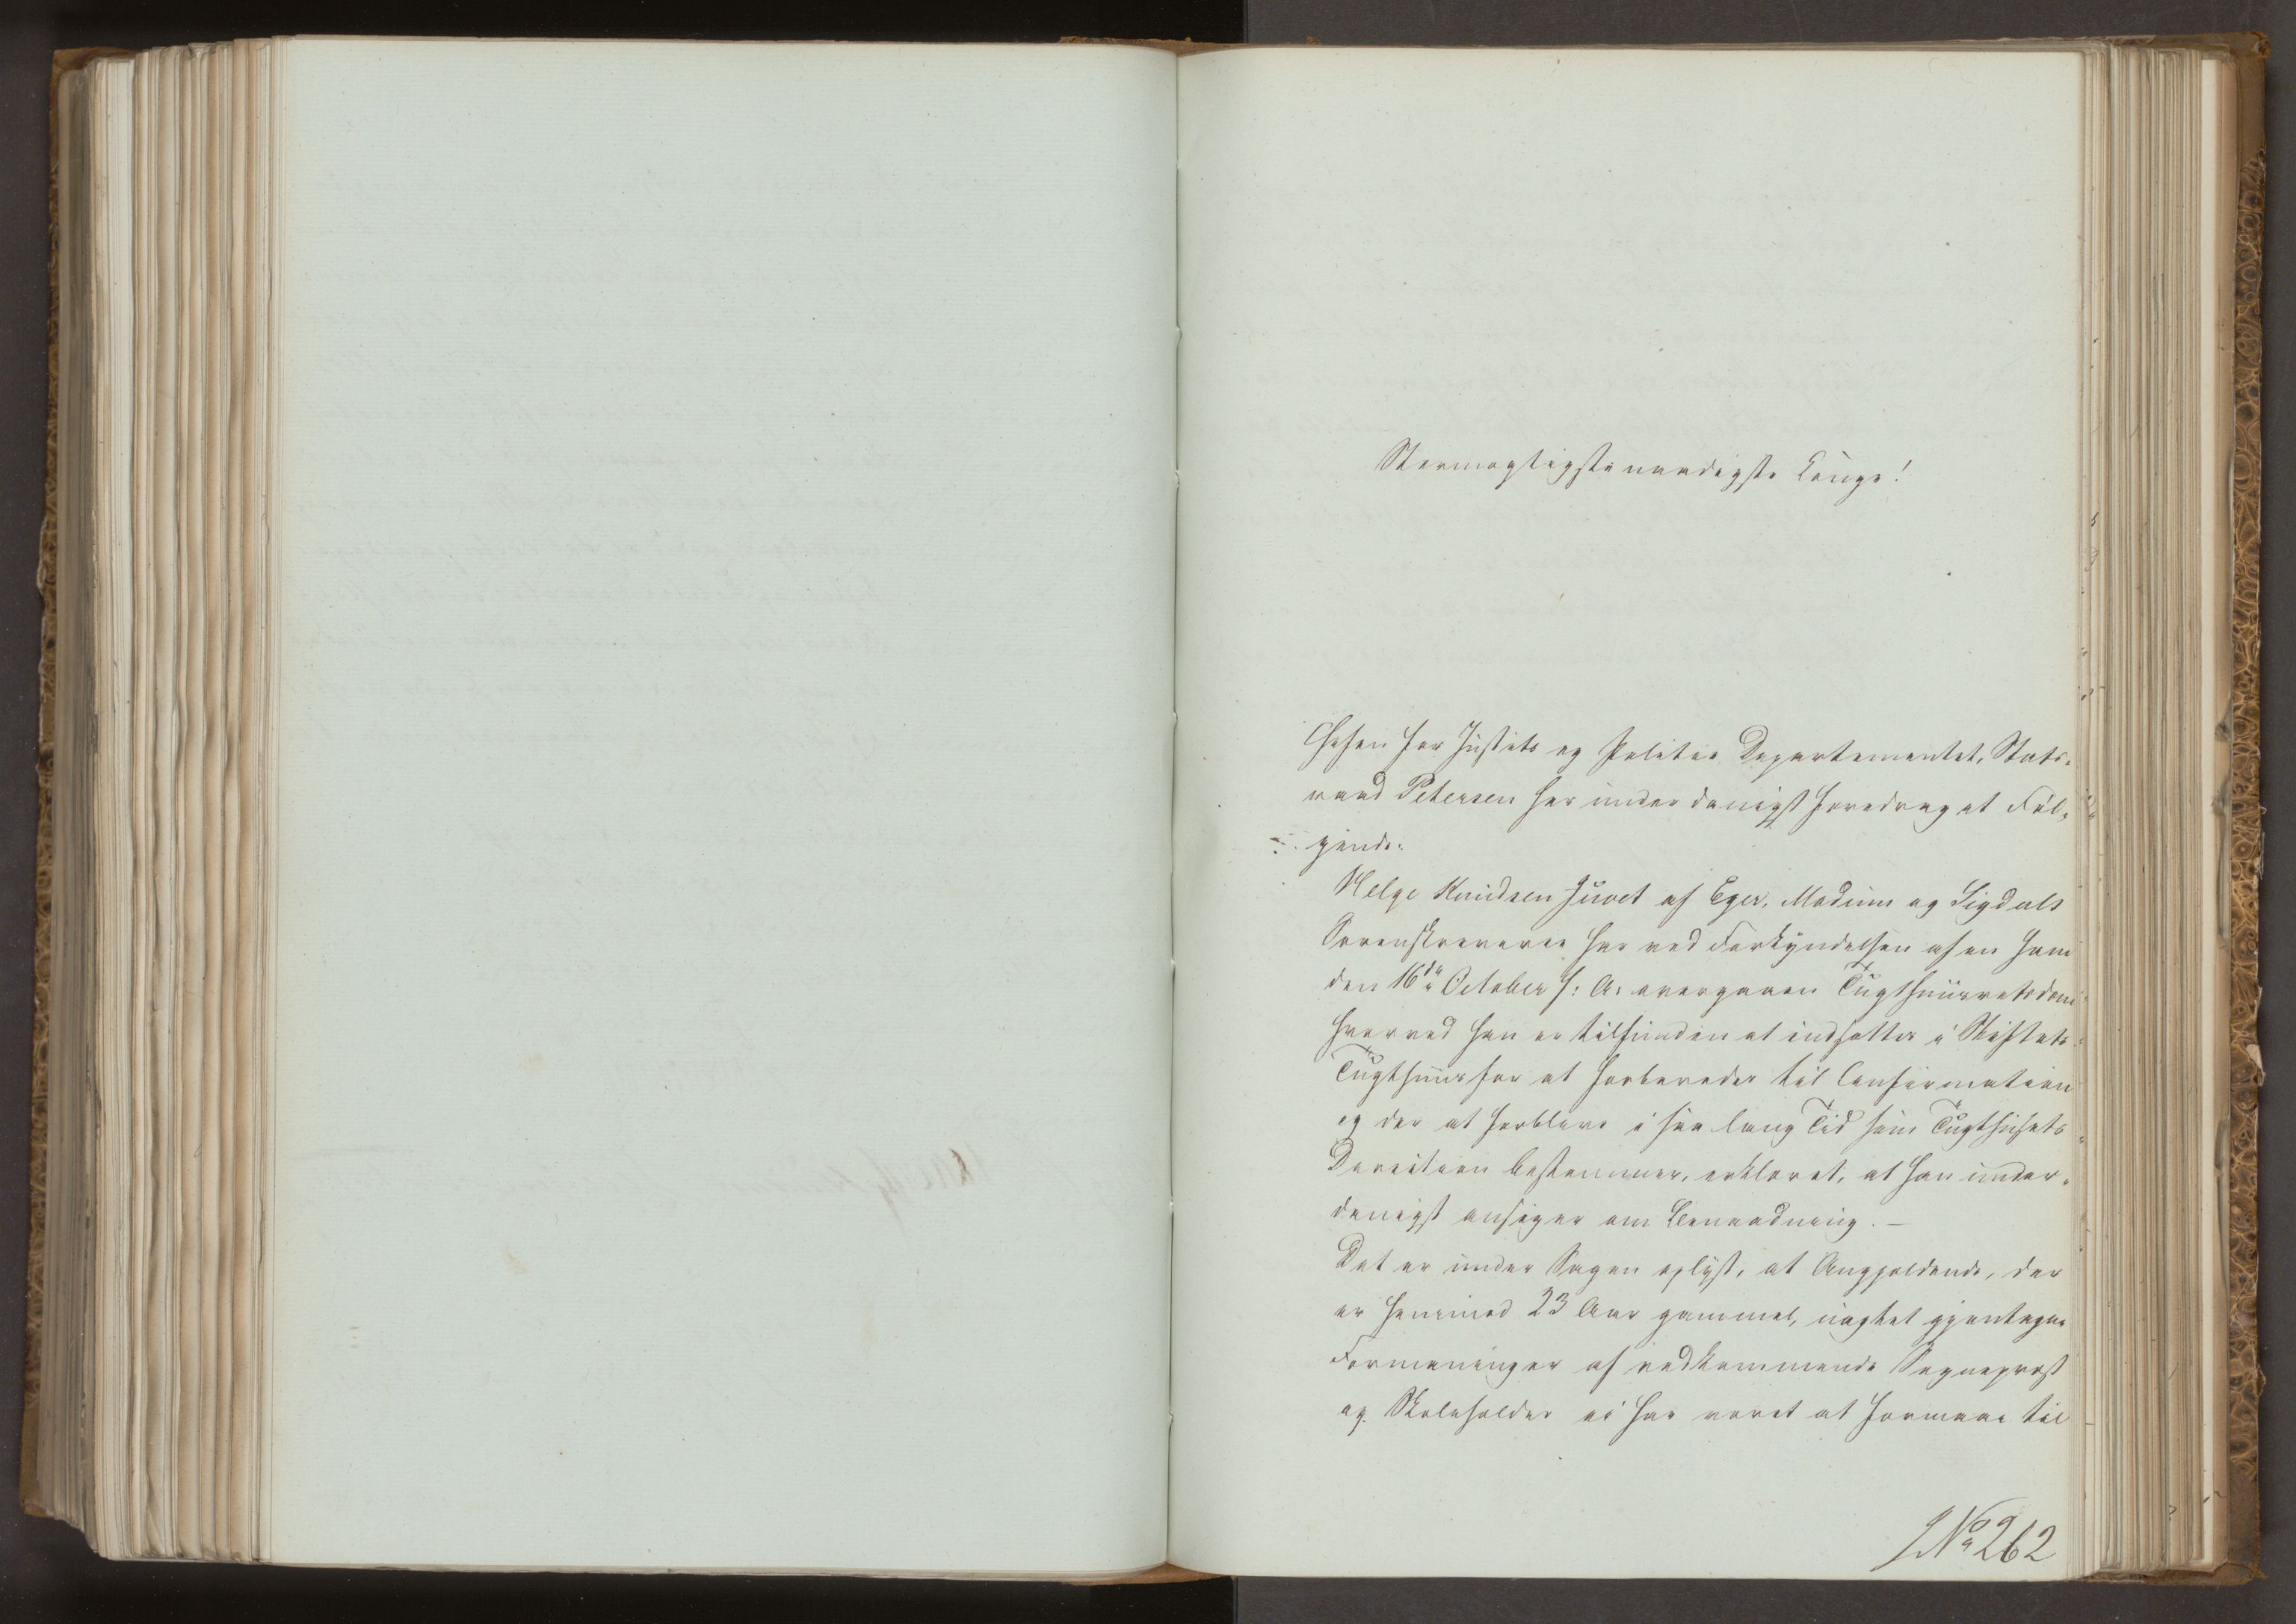 Stormægtigste naadigste Konge!
Chefen for Justits og Politie Departementet, Stats-
raad Petersen har underdanigst foredraget Føl-
gende:
Helge Knudsen Juvet af Eger, Modum og Sigdals
Sorenskriverie har ved Forkyndelsen af en ham
den 16de October f: A: overgaaen Tugthuusretsdom
hvorved han er tilfunden at indsættes i Stiftets
Tugthuus for at forberedes til Confirmation
og der at forblive i saa lang Tid som Tugthusets
Direction bestemmer, erklæret, at han under-
danigst ansøger om Benaadning. -
Det er under Sagen oplyst, at Angjældende, der
er henimod 23 Aar gammel, uagtet gjentagne
Formaninger af vedkommende Sognepræst
og Skoleholder ei har været at formaae til
JNo 262